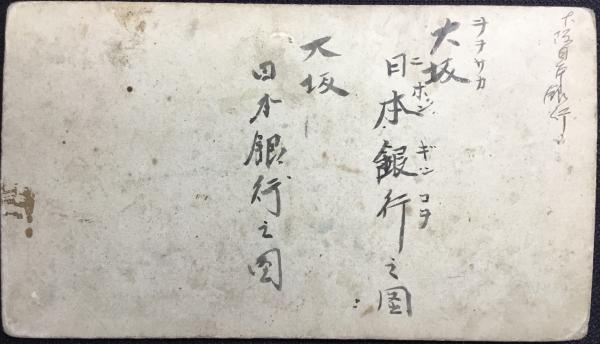 大阪日本銀行
ヲヲサカ
大坂
ニホン ギンコヲ
日本銀行之圖
大坂
日本銀行之図